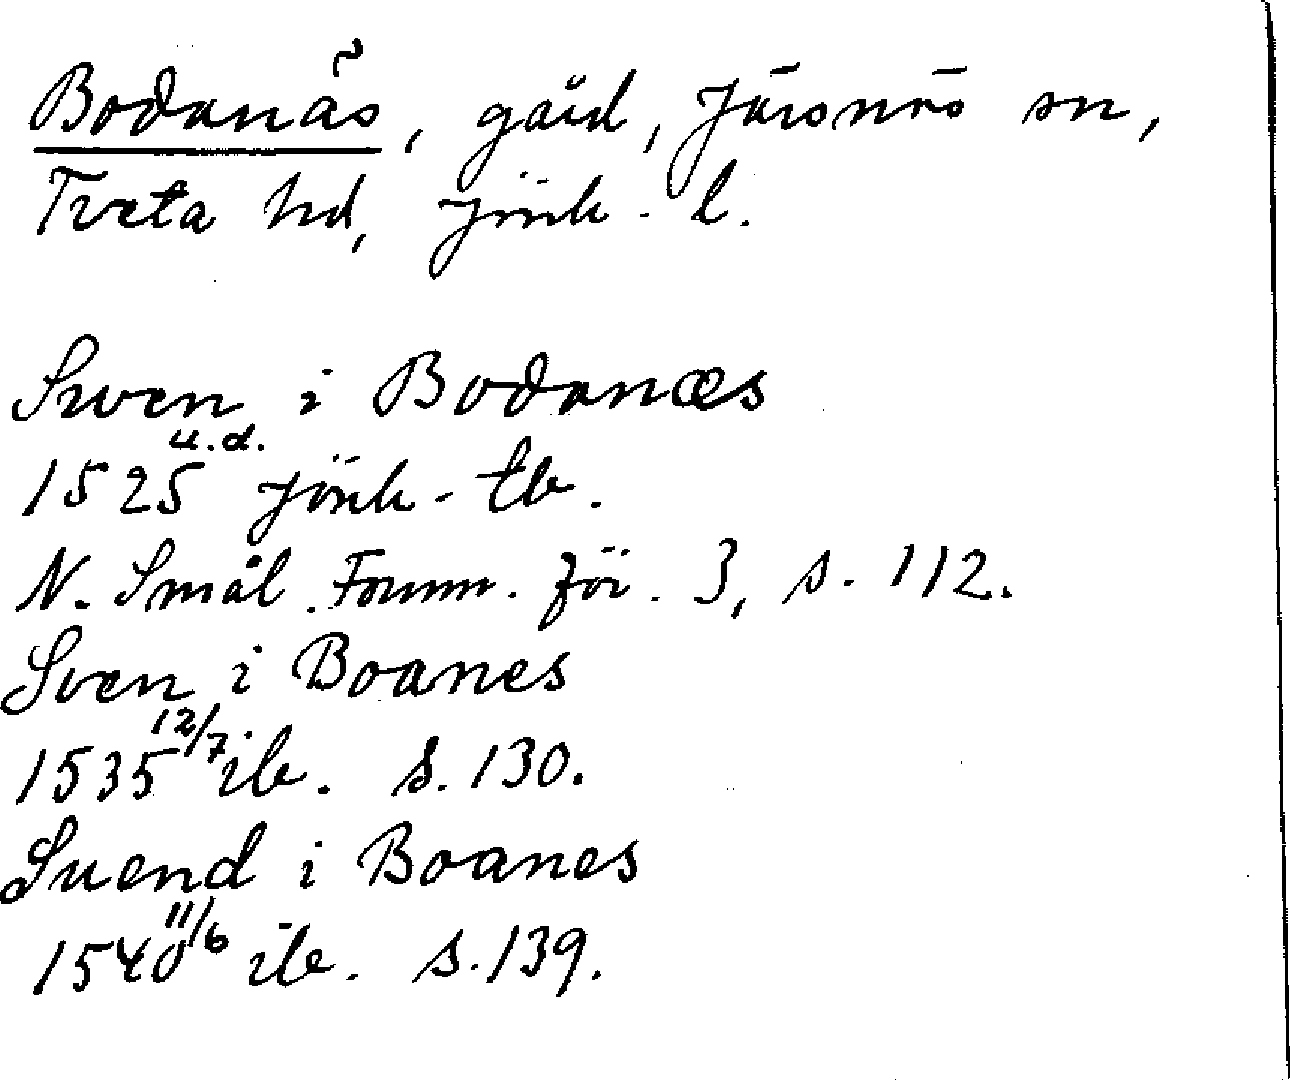 Bodanäs, gård, Järsnäs sn,
Tveta hd, Jönk. l.
Swen i Bodanæs
1525 u.d. Jönk. tb.
N. Smål. Fornm. för. 3, s. 112.
Sven i Boanes
1535 12/7 ib. s. 130.
Suend i Boanes
1540 11/6 ib. s. 139.